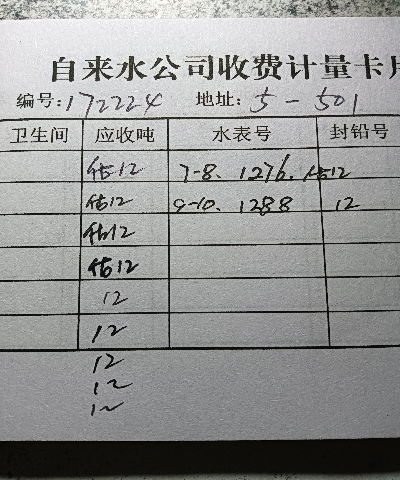 自来水公司收费计量卡片
编号:172224 地址:5-501
卫生间 应收吨 水表号 封铅号
估12 7-8. 1276. 估12
估12 9-10. 1288 12
估12
估12
12
12
12
12
12